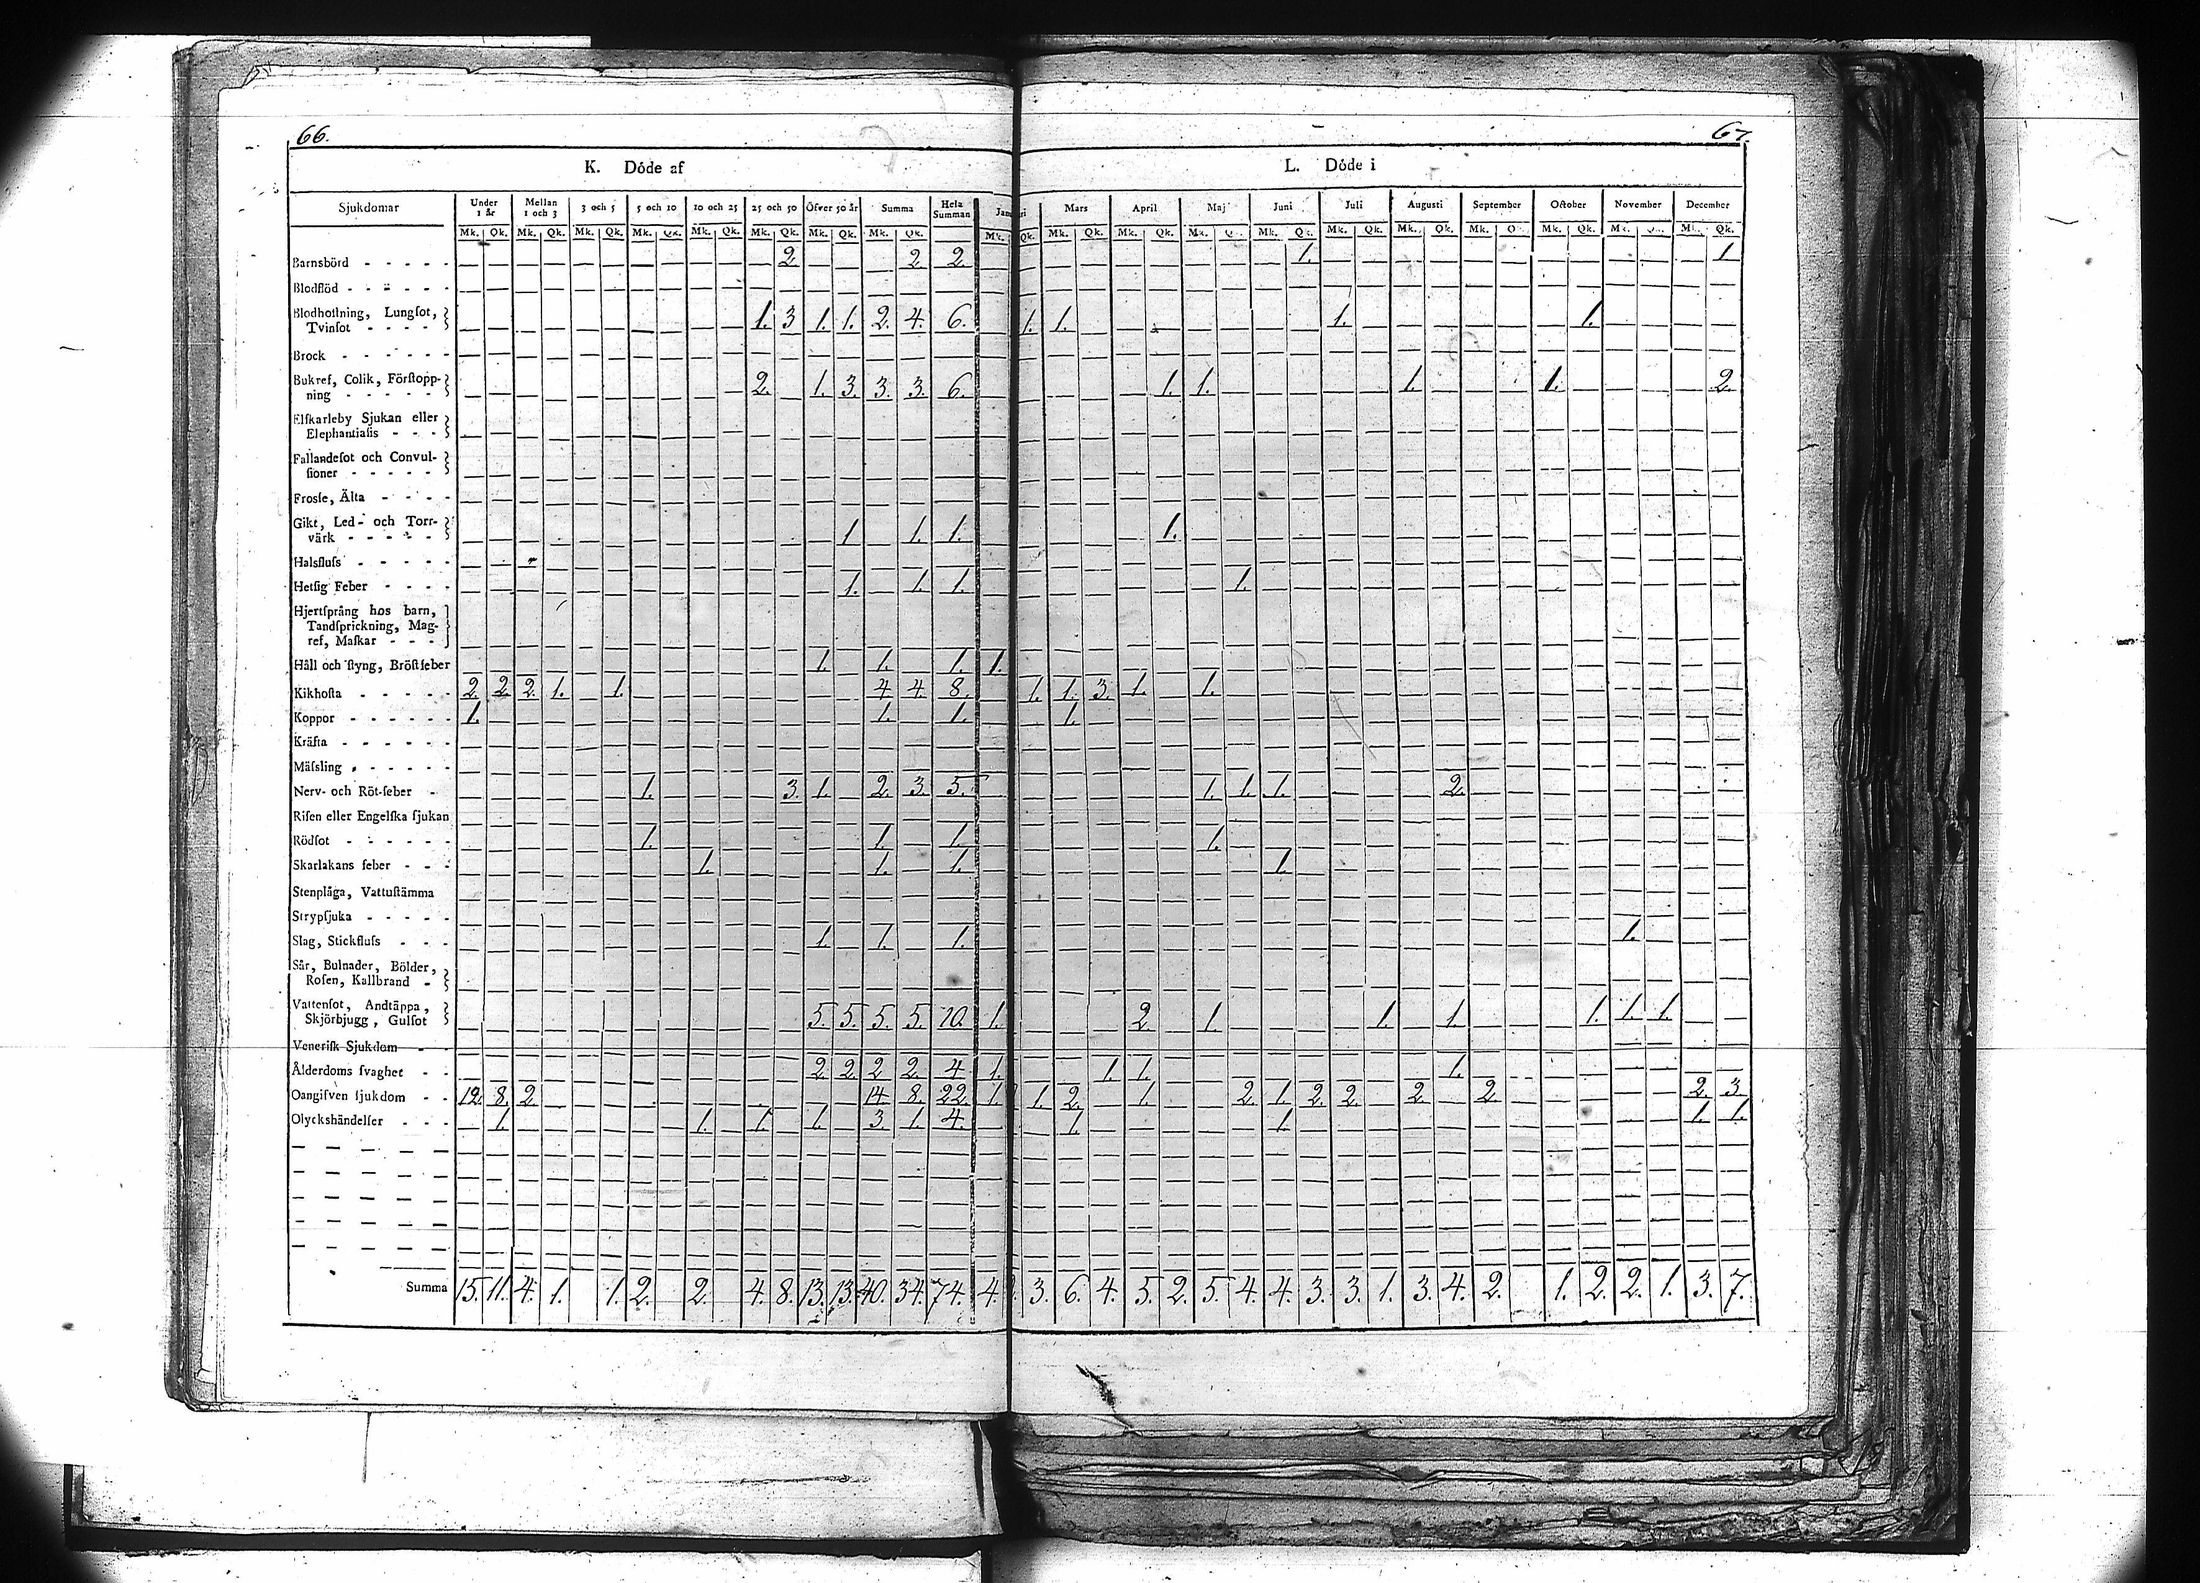 66.
67.
K. Döde af
L. Döde i
Sjukdomar Under 1 år Mellan 1 och 3 3 och 5 5 och 10 10 och 25 25 och 50 Öfver 50 år Summa Hela Summan
Mars April Maj Juni Juli Augusti September October November December
Mk. Qk. Mk. Qk. Mk. Qk. Mk. Qk. Mk. Qk. Mk. Qk. Mk. Qk. Mk. Qk.
Barnsbörd - - - - - 2 2 2 1. 1
Blodflöd - - - - -
Blodhostning, Lungſot,
Tvinſot - - - - 1. 3 1. 1. 2. 4. 6. 1. 1. 1. 1.
Brock - - - - - -
Bukref, Colik, Förſtopp-
ning - - - - - 2. 1. 3. 3. 3. 6. 1. 1. 1. 1. 2.
Elſkarleby Sjukan eller
Elephantiaſis - - -
Fallandeſot och Convul-
ſioner - - - - -
Frosſe, Älta - - - -
Gikt, Led- och Torr-
värk - - - - - 1 1. 1. 1.
Halsfluſs - - - - -
Hetſig Feber - - - - 1. 1. 1. 1.
Hjertſprång hos barn,
Tandſprickning, Mag-
ref, Maſkar - - -
Håll och ſtyng, Bröſtfeber 1. 1. 1. 1.
Kikhoſta - - - - - 2. 2. 2. 1. 1. 4 4 8. 1. 1. 3. 1. 1.
Koppor - - - - - - 1. 1. 1. 1.
Kräfta - - - - - -
Mäſsling - - - - - -
Nerv- och Röt-feber - 1. 3. 1. 2. 3. 5. 1. 1. 1. 2.
Riſen eller Engelſka ſjukan
Rödſot - - - - - - 1. 1. 1. 1.
Skarlakans feber - - - 1. 1. 1. 1.
Stenplåga, Vattuſtämma
Strypſjuka - - - - -
Slag, Stickfluſs - - - 1. 1. 1. 1.
Sår, Bulnader, Bölder,
Roſen, Kallbrand -
Vattenſot, Andtäppa,
Skjörbjugg, Gulſot 5. 5. 5. 5. 10. 1. 2. 1. 1. 1. 1. 1. 1.
Veneriſk Sjukdom - -
Ålderdoms ſvaghet - - 2. 2. 2. 2. 4 1. 1. 1. 1.
Oangifven ſjukdom - - 12. 8. 2. 14 8. 22. 1. 1. 2. 1. 2. 1. 2. 2. 2. 2. 2. 3.
Olyckshändelſer - - - 1. 1. 1. 1. 3. 1. 4. 1. 1. 1. 1.
Summa 15. 11. 4. 1. 1. 2. 2. 4. 8. 13. 13. 40. 34. 74. 4. 3. 6. 4. 5. 2. 5. 4. 4. 3. 3. 1. 3. 4. 2. 1. 2. 2. 1. 3. 7.